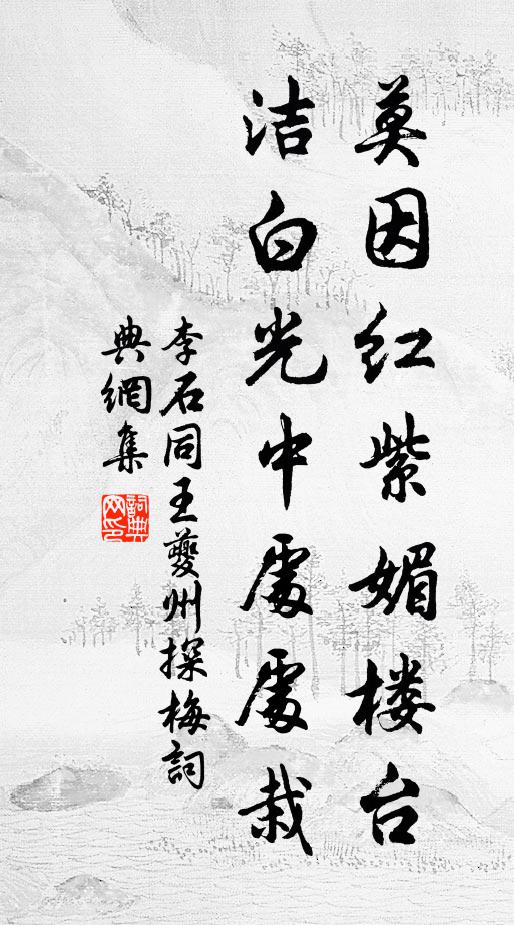 莫因红紫媚楼台
洁白光中處處栽
李石同王夔州探梅詞
典網集
詞典網印